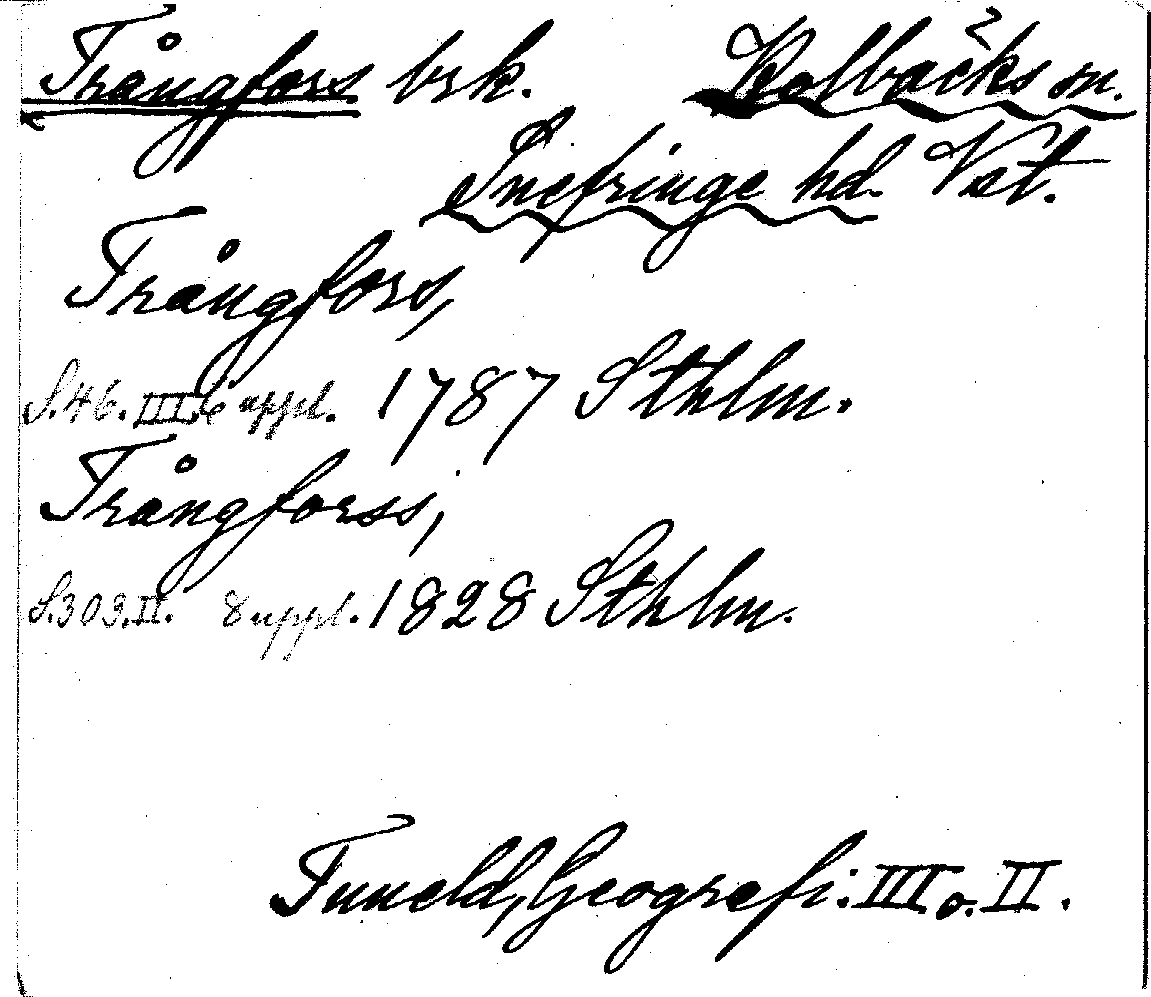 Trångfors brk. Kolbäcks sn.
Snefringe hd. Vst.
Trångfors,
S.46. III. 6 uppl. 1787 Sthlm.
Trångforss,
S.303. II. 8 uppl. 1828 Sthlm.
Tuneld, Geografi. III o. II.